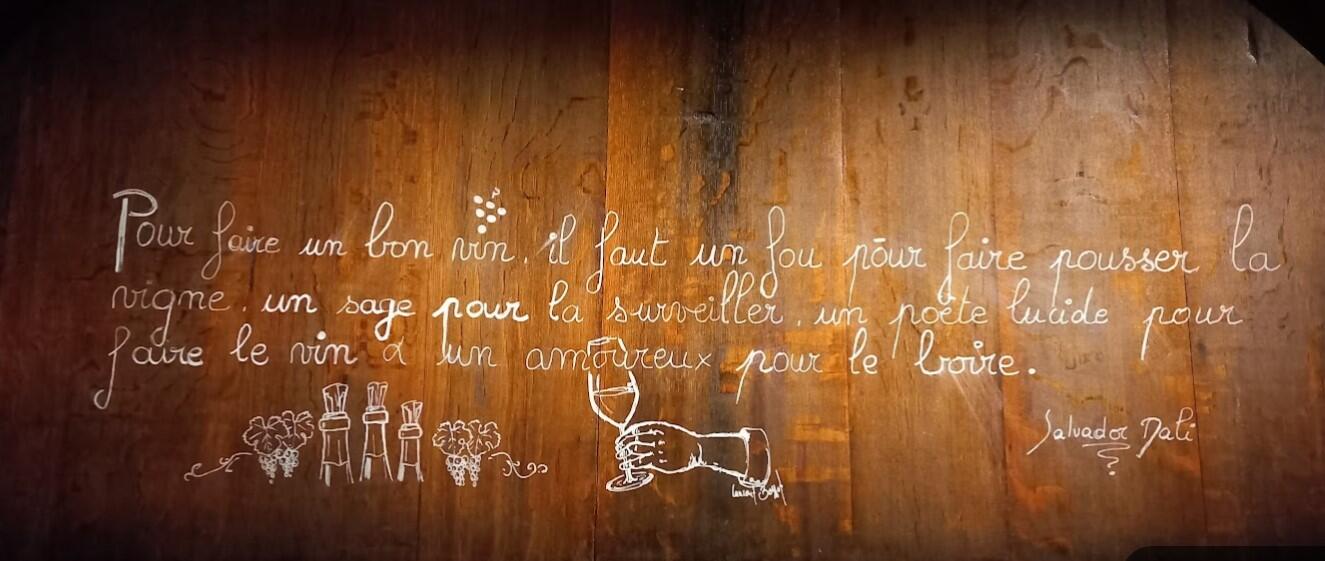 Pour faire un bon vin, il faut un fou pour faire pousser la
vigne, un sage pour la surveiller, un poète lucide pour
faire le vin & un amoureux pour le boire.
Salvador Dali